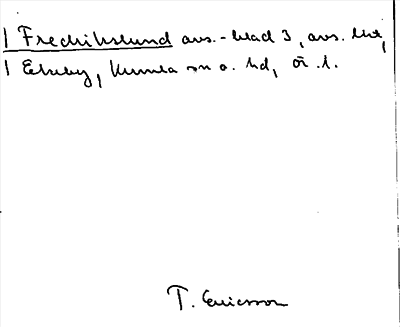 | Fredrikslund avs.-blad 3, avs. Lht,
| Ekeby, Kumla sn o. hd, Ör. l.
T. Ericsson